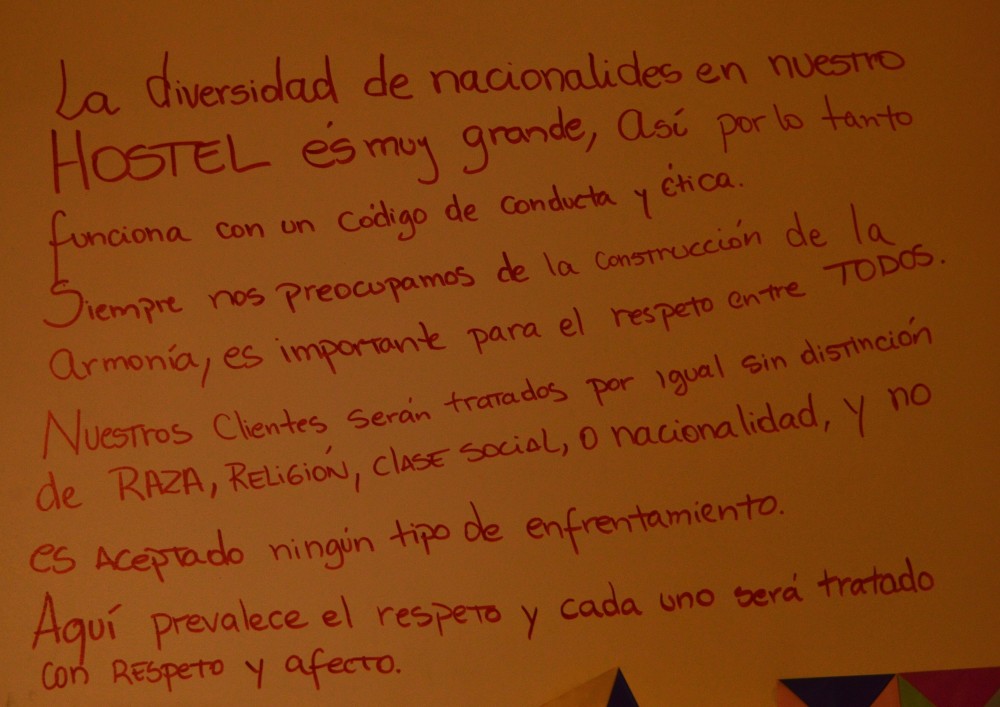 La diversidad de nacionalides en nuestro
HOSTEL és muy grande, así por lo tanto
funciona con un código de conducta y ética.
Siempre nos preocupamos de la construcción de la
armonía, es importante para el respeto entre TODOS.
Nuestros clientes serán tratados por igual sin distinción
de RAZA, RELIGIÓN, CLASE SOCIAL, o nacionalidad, y no
es aceptado ningún tipo de enfrentamiento.
Aquí prevalece el respeto y cada uno será tratado
con respeto y afecto.